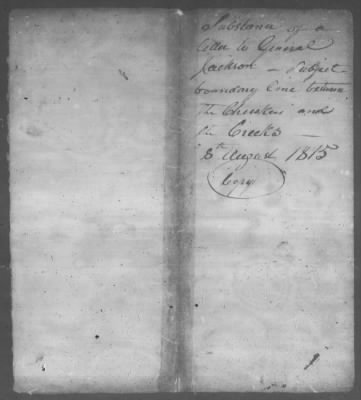 Substance of a
letter to General
Jackson — Subject
boundary line between
the Cherokees and
the Creeks —
8th August 1815
Copy